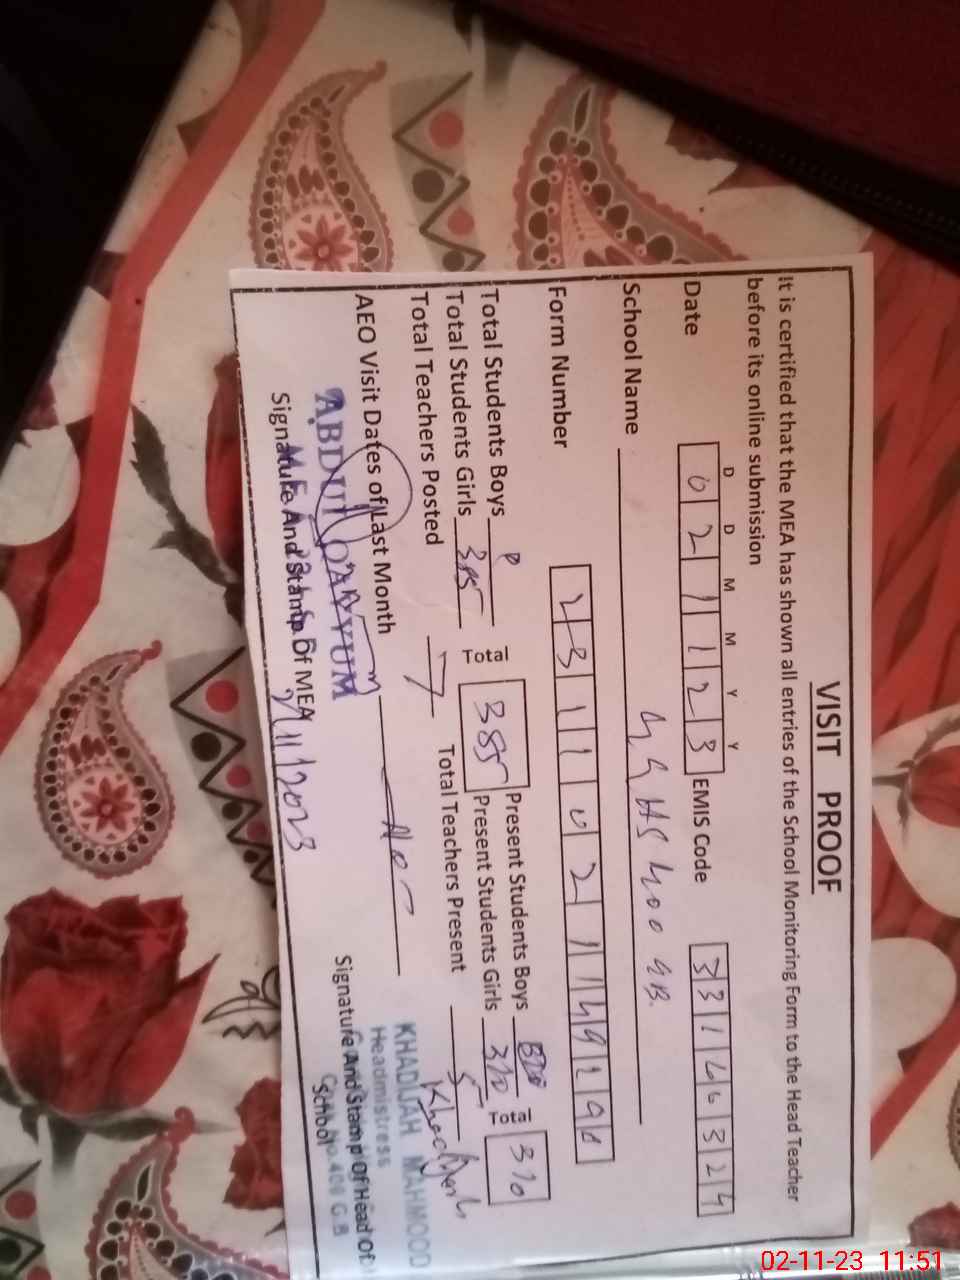 VISIT PROOF
It is certified that the MEA has shown all entries of the School Monitoring Form to the Head Teacher
before its online submission
D D M M Y Y
Date 0 2 1 1 2 3 EMIS Code 3 3 1 6 0 3 2 4
School Name
Form Number 2 3 1 1 0 2 1 1 4 9 2 9
Total Students Boys Present Students Boys
Total 385 Total 370
Total Students Girls 385 Present Students Girls 370
Total Teachers Posted 7 Total Teachers Present 5
AEO Visit Dates of Last Month
ABDUL QAYYUM
Signature And Stamp Of MEA
2/11/2023
KHADIJAH MAHMOOD
Headmistress
Signature And Stamp Of Head Of
School
G.B
02-11-23 11:51